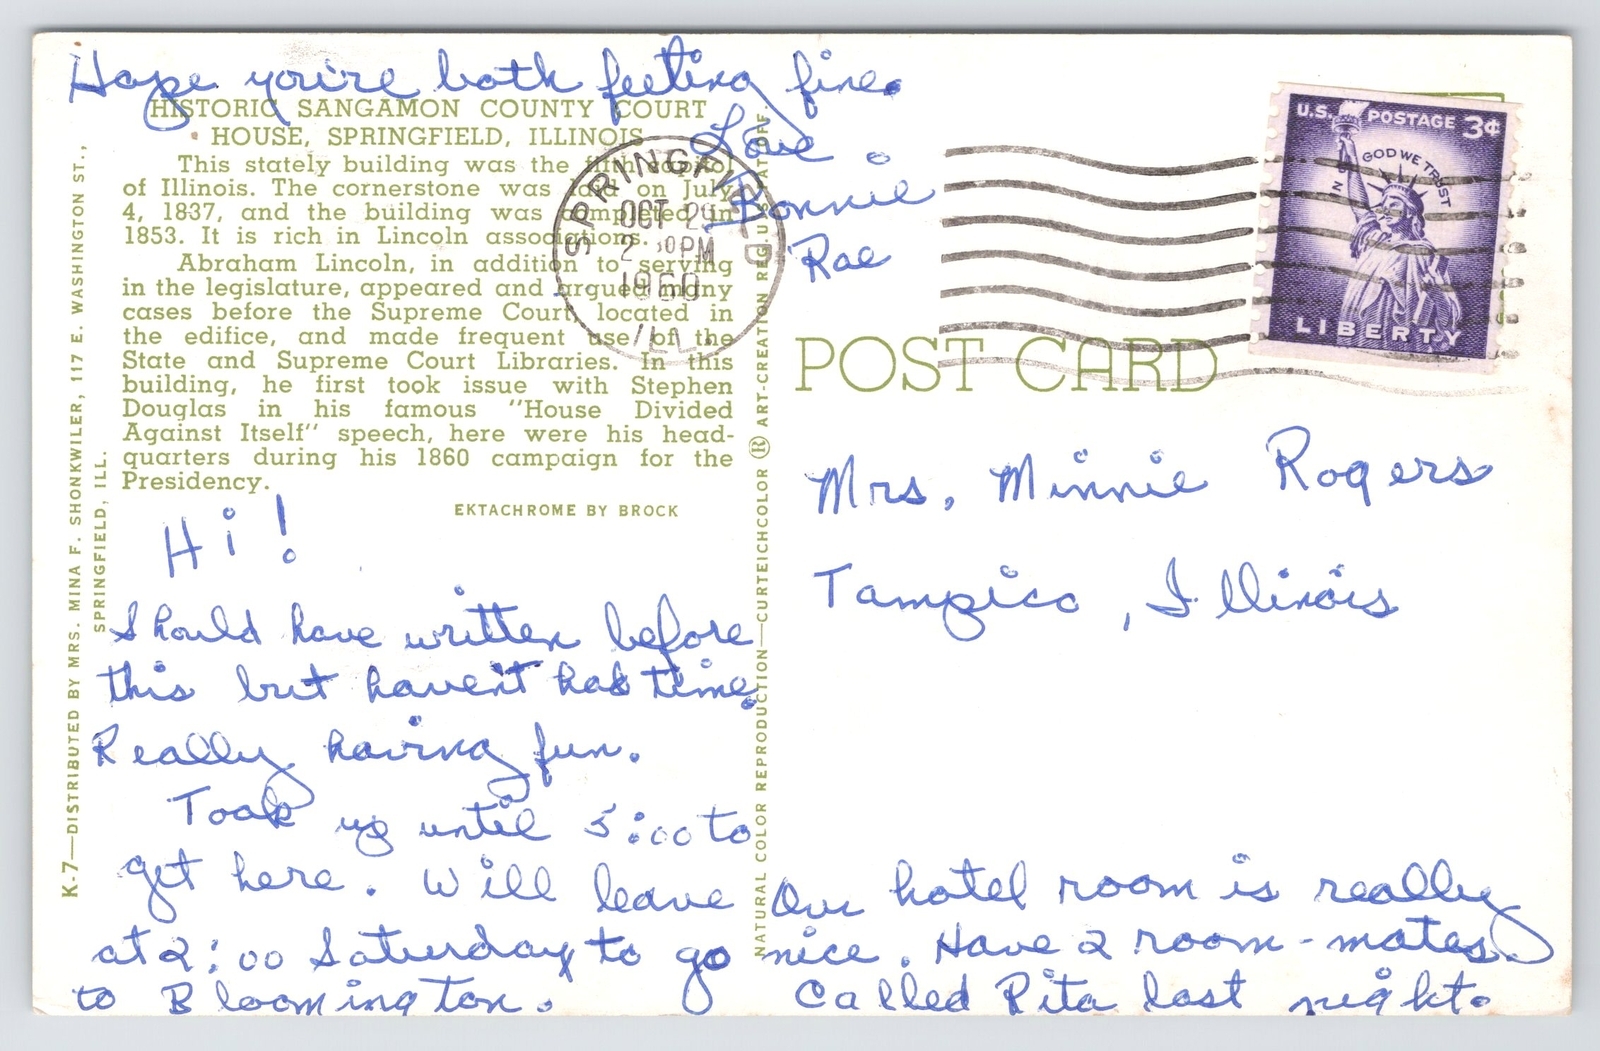 Hope you're both feeling fine.
Love,
Bonnie
Rae
HISTORIC SANGAMON COUNTY COURT
HOUSE, SPRINGFIELD, ILLINOIS
This stately building was the fifth capitol
of Illinois. The cornerstone was laid on July
4, 1837, and the building was completed in
1853. It is rich in Lincoln associations.
Abraham Lincoln, in addition to serving
in the legislature, appeared and argued many
cases before the Supreme Court, located in
the edifice, and made frequent use of the
State and Supreme Court Libraries. In this
building, he first took issue with Stephen
Douglas in his famous "House Divided
Against Itself" speech, here were his head-
quarters during his 1860 campaign for the
Presidency.
EKTACHROME BY BROCK
K-7—DISTRIBUTED BY MRS. MINA F. SHONKWILER, 117 E. WASHINGTON ST.,
SPRINGFIELD, ILL.
NATURAL COLOR REPRODUCTION—CURTEICHCOLOR ® ART-CREATION REG. U.S. PAT. OFF.
SPRINGFIELD
OCT 29
2 30 PM
1960
ILL.
U.S. POSTAGE 3¢
IN GOD WE TRUST
LIBERTY
POST CARD
Mrs. Minnie Rogers
Tampico, Illinois
Hi!
Should have written before
this but haven't had time.
Really having fun.
Took us until 5:00 to
get here. Will leave
at 2:00 Saturday to go
to Bloomington.
Our hotel room is really
nice. Have 2 room-mates.
Called Rita last night.